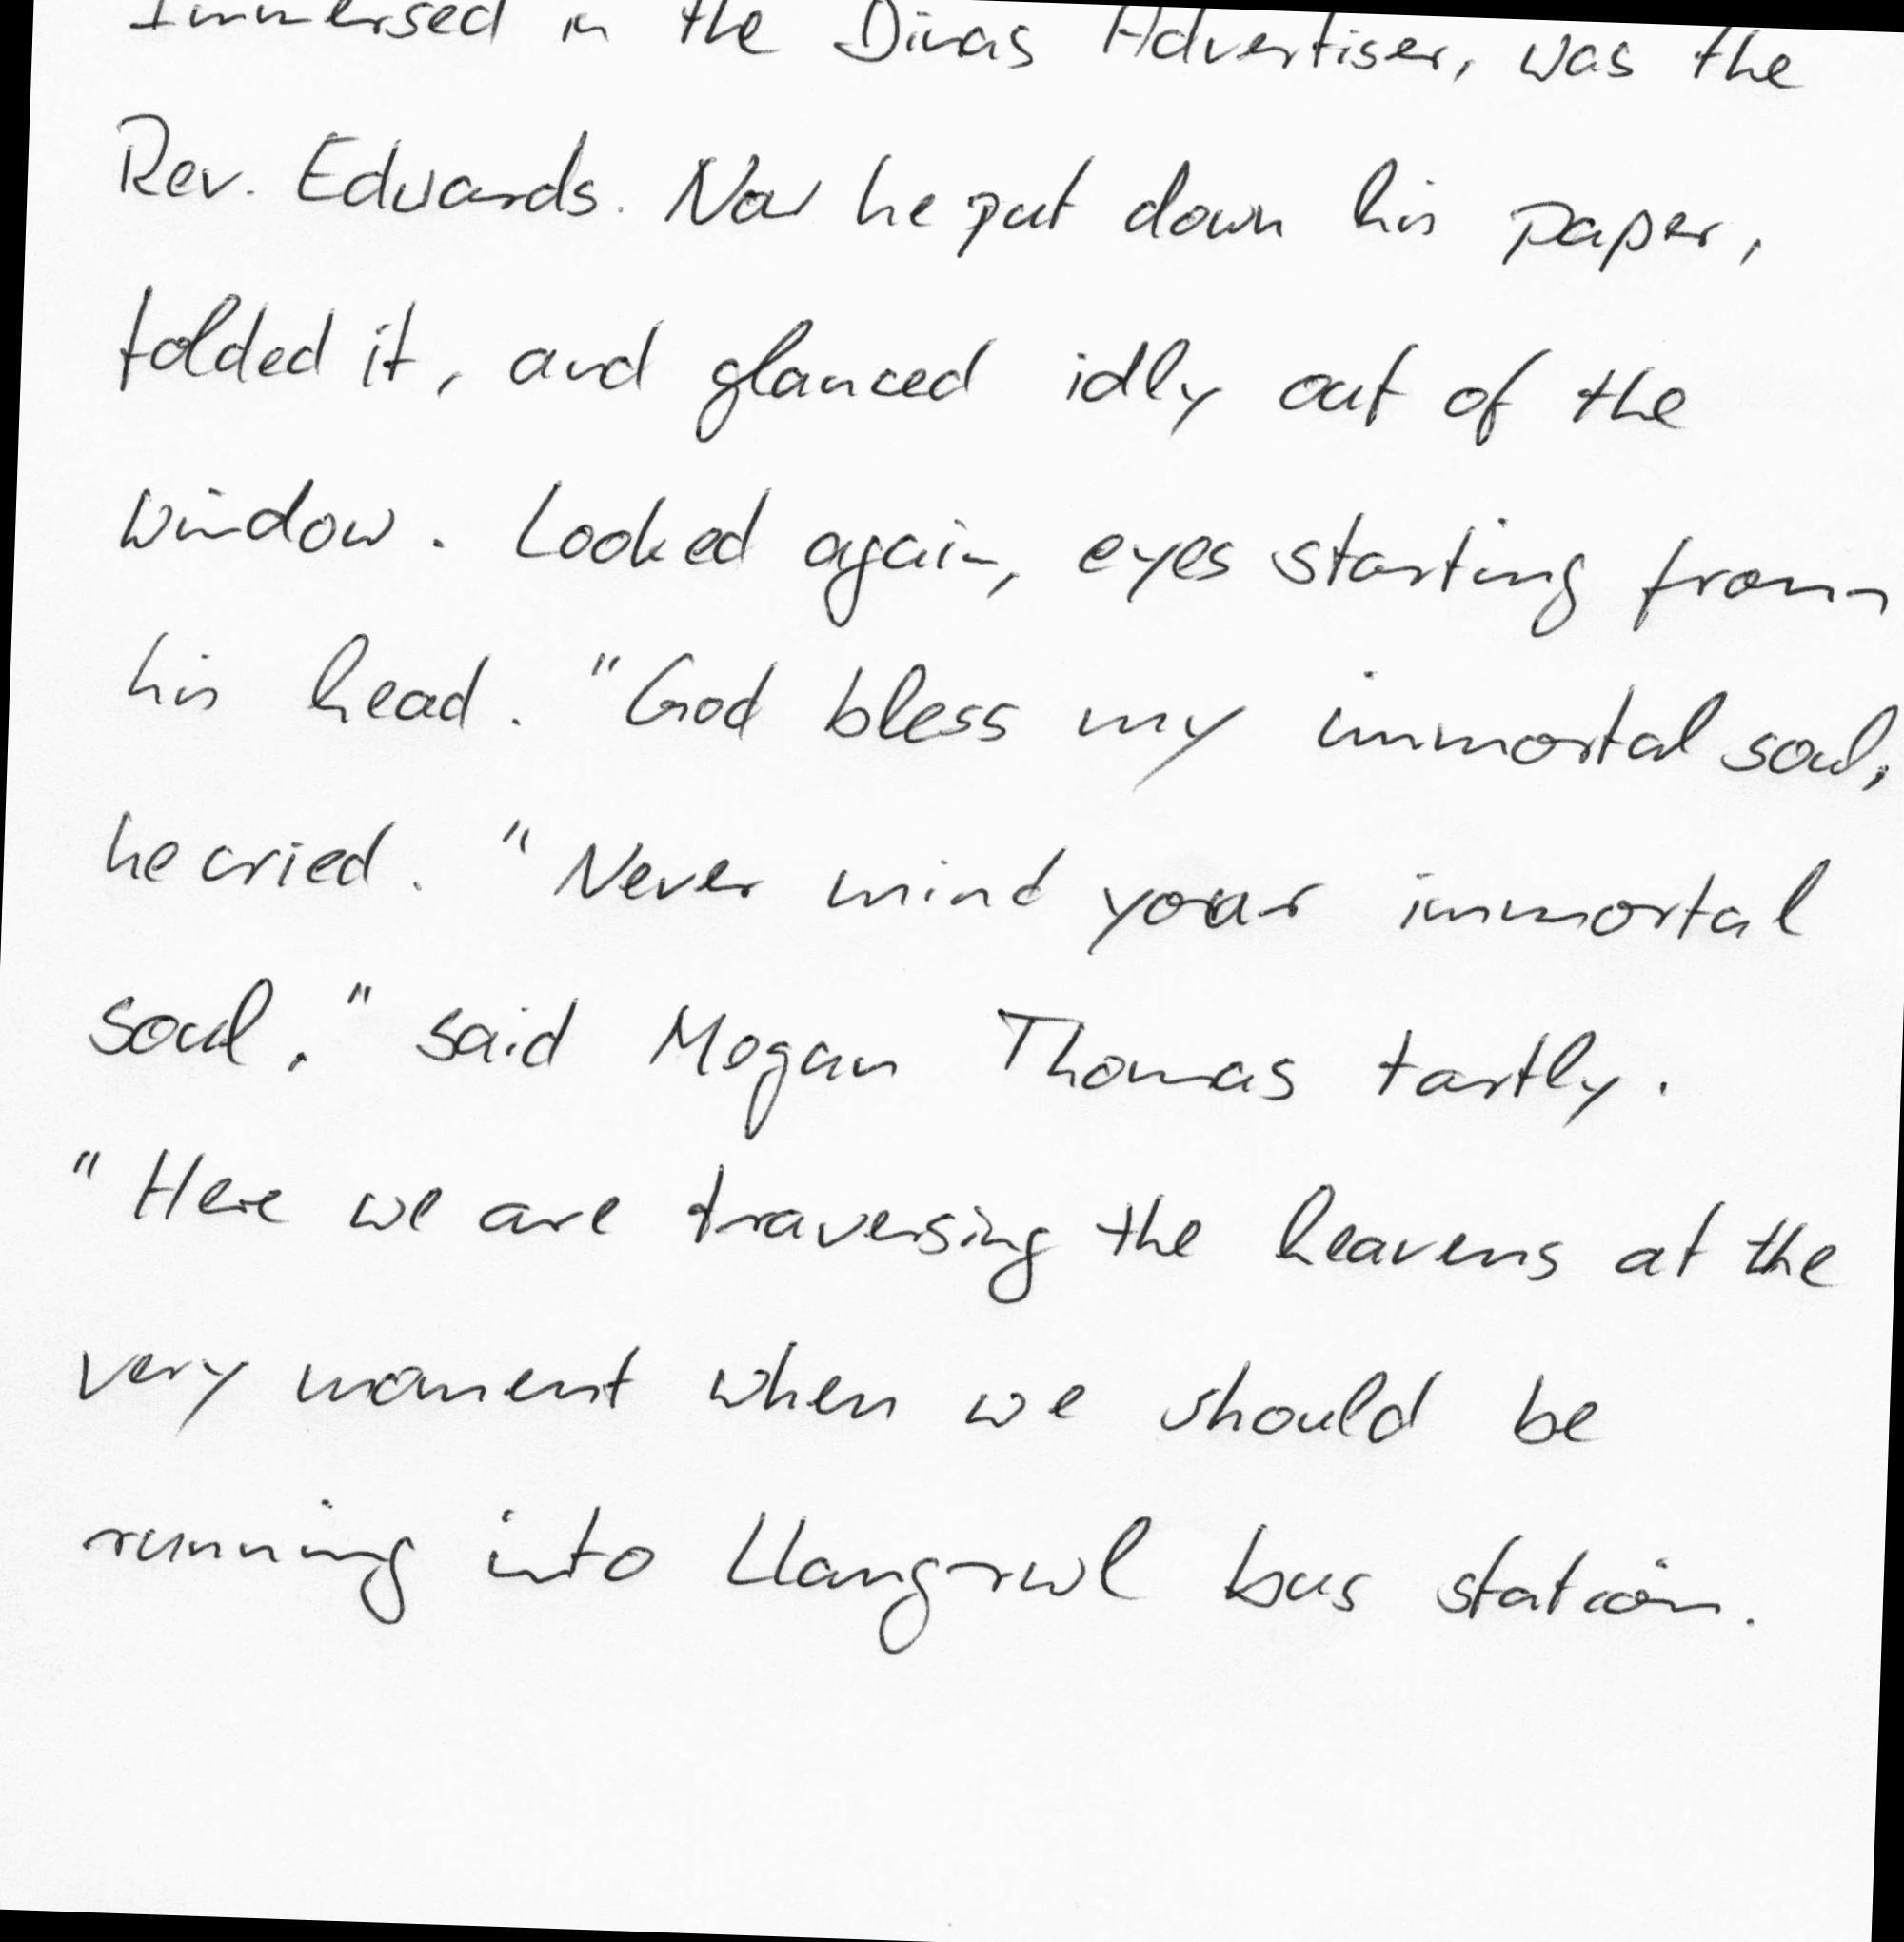 Immersed in the Dinas Advertiser, was the
Rev. Edwards. Now he put down his paper,
folded it, and glanced idly out of the
window. Looked again, eyes starting from
his head. "God bless my immortal soul,
he cried. "Never mind your immortal
soul," said Mogan Thomas tartly.
"Here we are traversing the heavens at the
very moment when we should be
running into Llangrwl bus station.